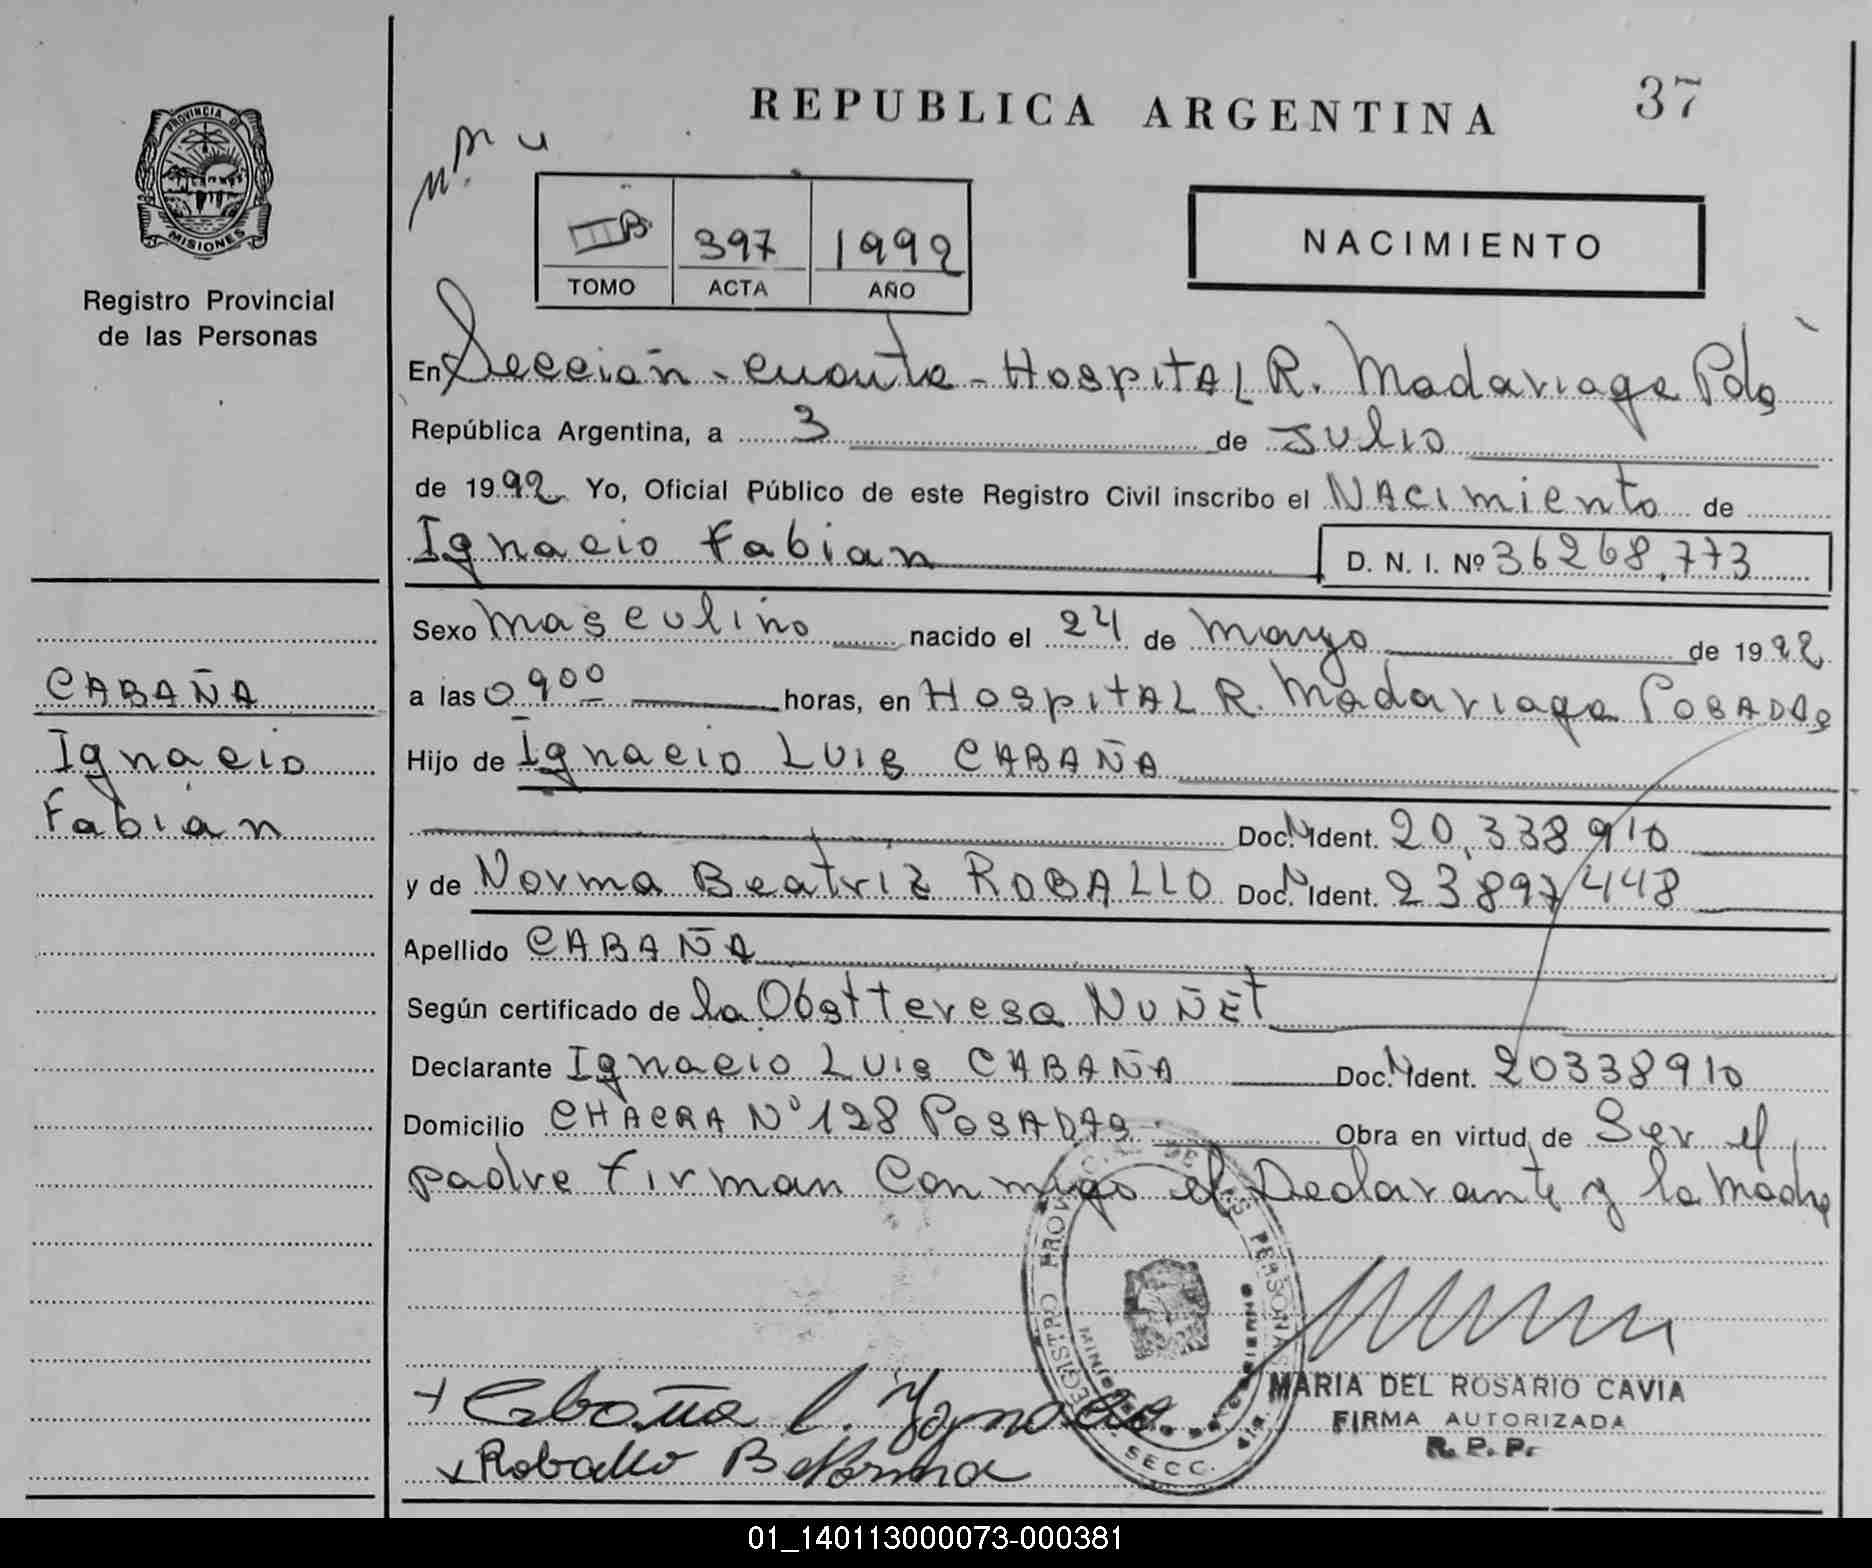 REPUBLICA ARGENTINA
37
PROVINCIA DE
MISIONES
Registro Provincial
de las Personas
III B. 397 1992
TOMO ACTA AÑO
NACIMIENTO
En Sección cuarta - HOSPITAL R. Madariaga Pdas
República Argentina, a 3 de Julio
de 1992 Yo, Oficial Público de este Registro Civil inscribo el NACimiento de
Ignacio Fabian D. N. I. Nº 36268.773
Sexo masculino nacido el 24 de mayo de 1992
a las 0900 horas, en HOSPITAL R. Madariaga POSADAS
Hijo de Ignacio LUIS CABAÑA
Doc. N Ident. 20.338910
y de Norma Beatriz ROBALLO Doc. N Ident. 23897448
Apellido CABAÑA
Según certificado de la Obst teresa NUÑEZ
Declarante Ignacio LUIS CABAÑA Doc. N Ident. 20338910
Domicilio CHACRA Nº 128 POSADAS Obra en virtud de Ser el
padre firman Conmigo el Declarante y la madre
CABAÑA
Ignacio
Fabián
REGISTRO PROVINCIAL DE LAS PERSONAS
SECC.
Cabaña L. Ignacio
Roballo B Norma
MARIA DEL ROSARIO CAVIA
FIRMA AUTORIZADA
R. P. P.
01_140113000073-000381